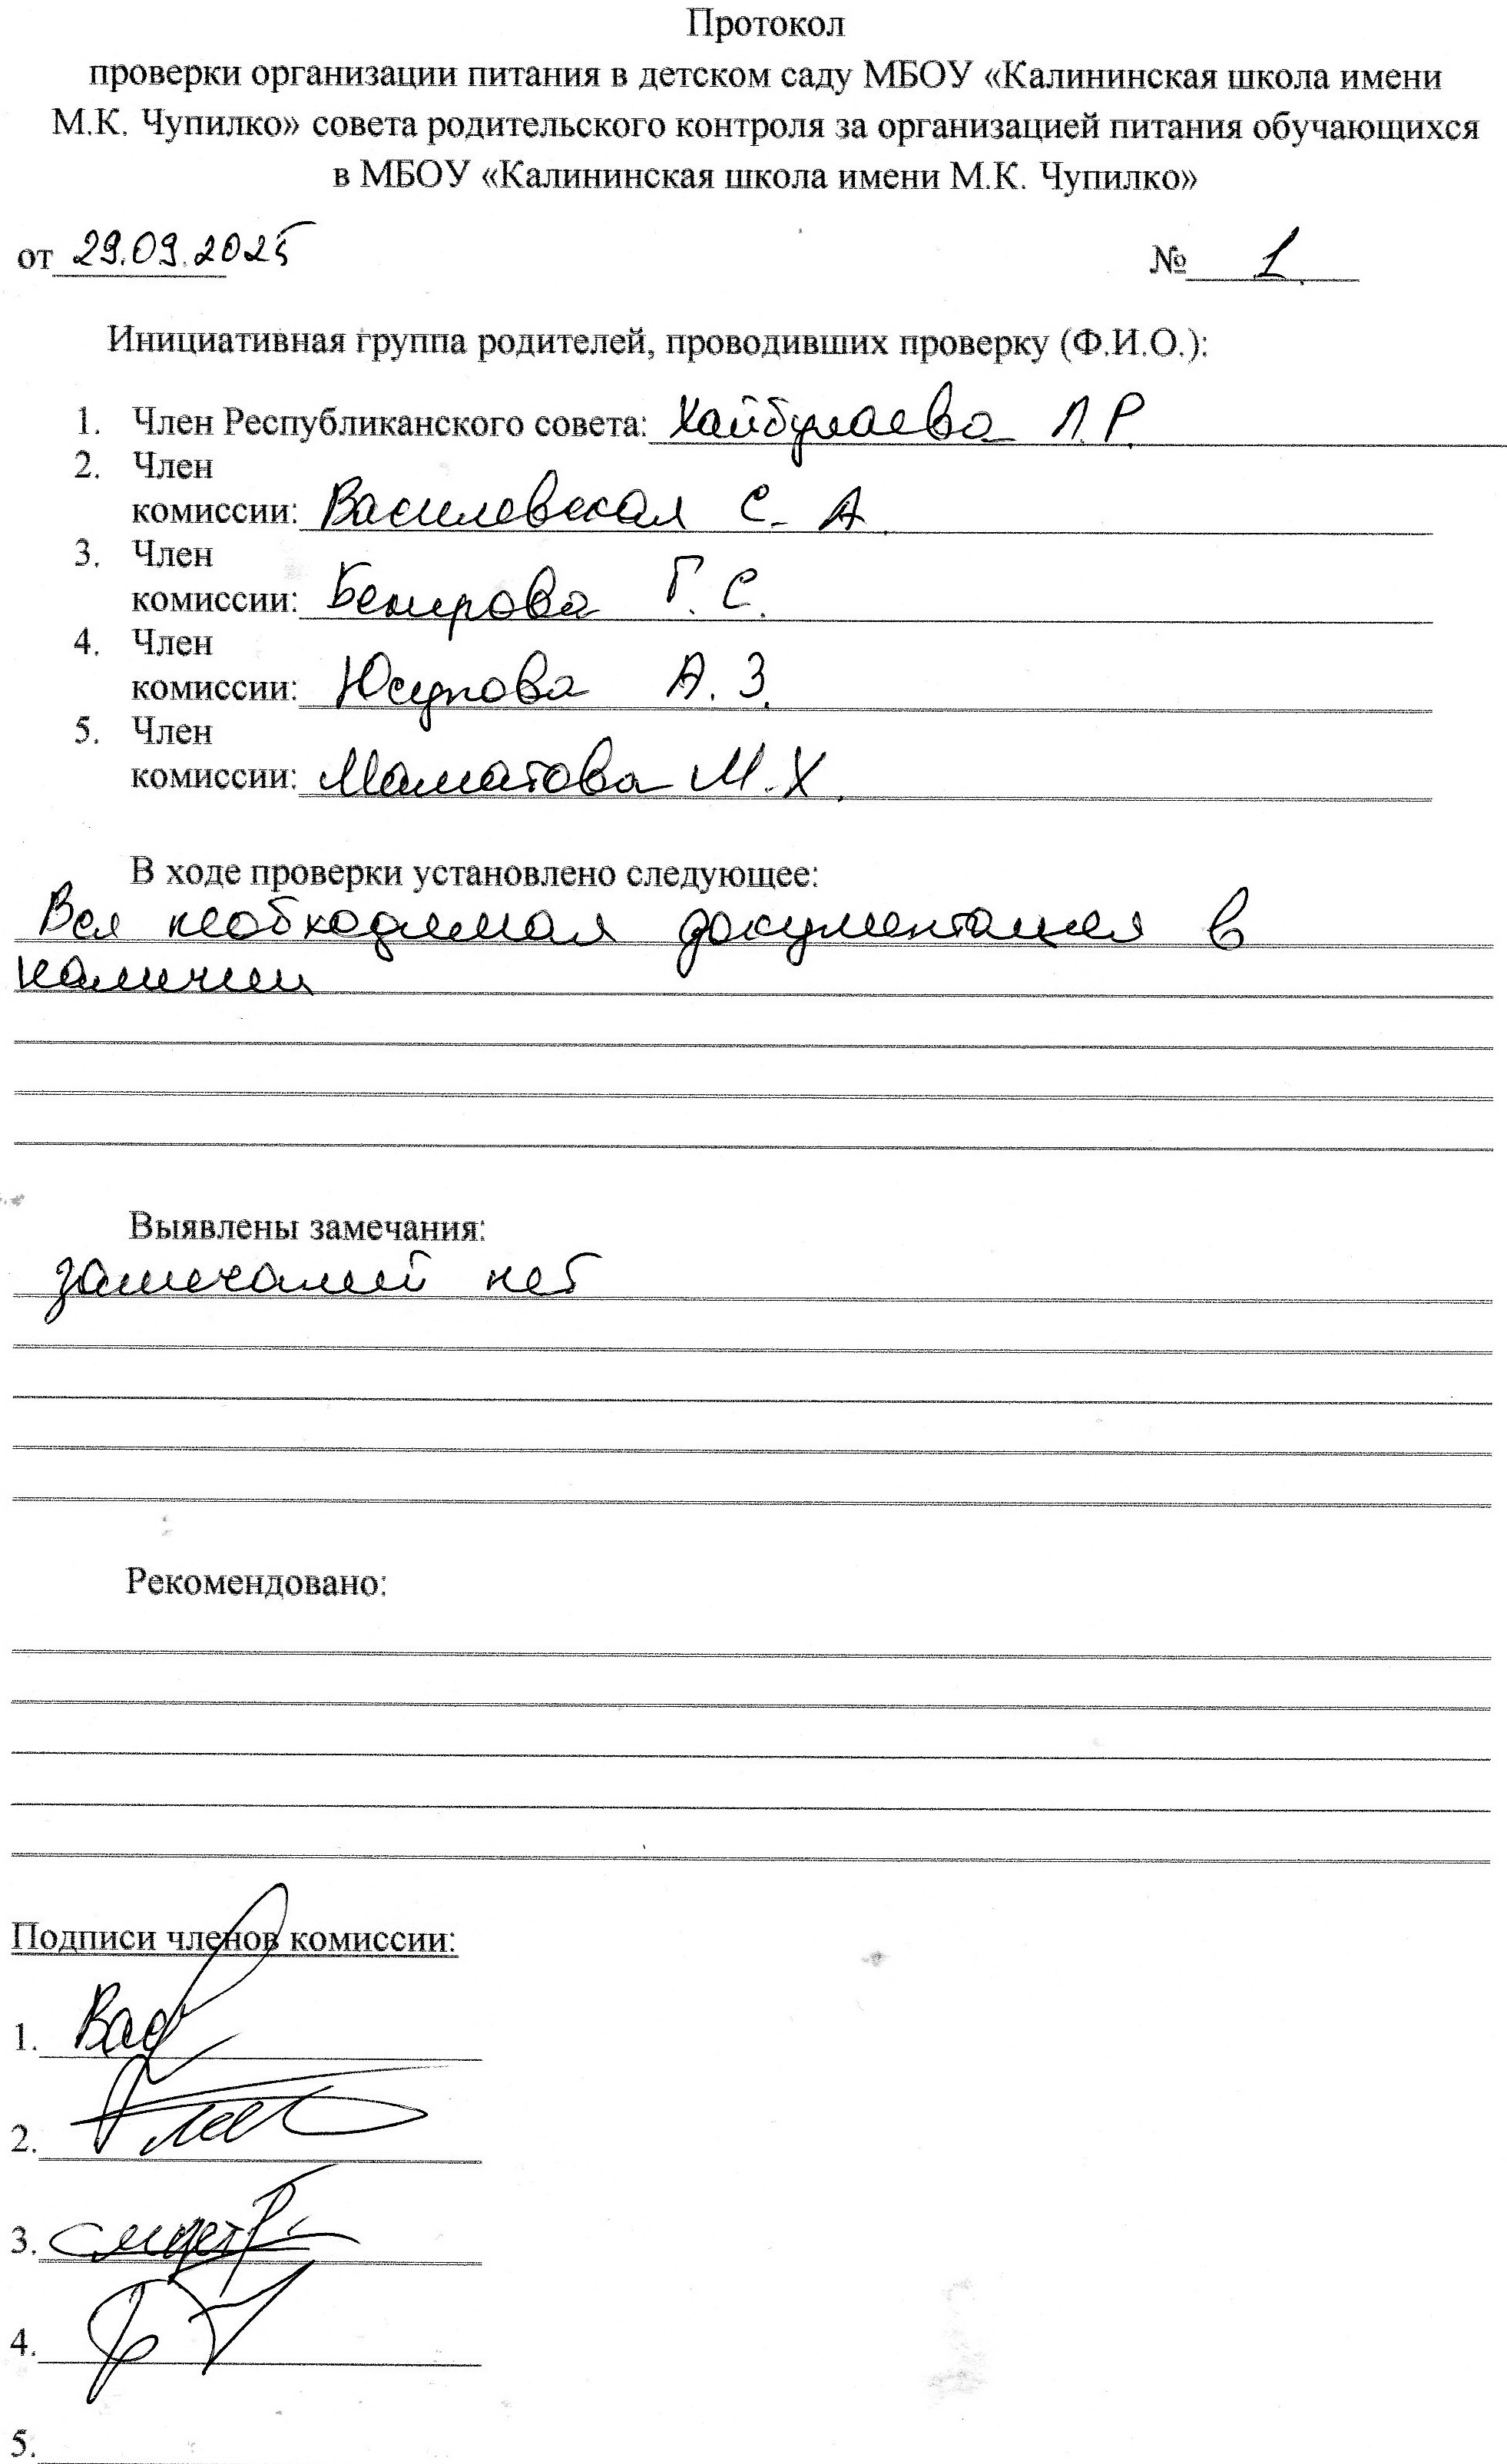 Протокол
проверки организации питания в детском саду МБОУ «Калининская школа имени
М.К. Чупилко» совета родительского контроля за организацией питания обучающихся
в МБОУ «Калининская школа имени М.К. Чупилко»
от 29.09.2025 № 1
Инициативная группа родителей, проводивших проверку (Ф.И.О.):
1. Член Республиканского совета: Хайбулаева Л.Р.
2. Член
комиссии: Василевская С. А.
3. Член
комиссии: Бекирова Г. С.
4. Член
комиссии: Юсупова А. З.
5. Член
комиссии: Маматова М.Х.
В ходе проверки установлено следующее:
Вся необходимая документация в
наличии
Выявлены замечания:
замечаний нет
Рекомендовано:
Подписи членов комиссии:
1.
2.
3.
4.
5.